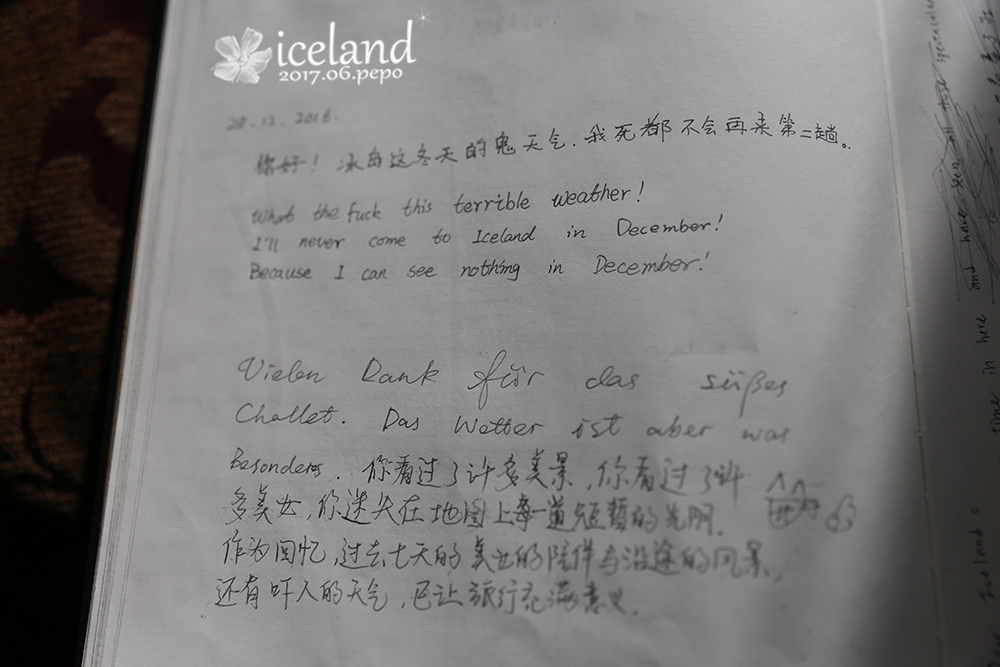 iceland
2017.06.pepo
20.12.2016.
你好！冰岛这冬天的鬼天气.我死都不会再来第二趟。
What the fuck this terrible weather!
I'll never come to Iceland in December!
Because I can see nothing in December!
Vielen Dank für das süßes
Challet. Das Wetter ist aber was
Besonderes. 你看过了许多美景,你看过了许
多美女,你迷失在地图上每一道短暂的光阴.
作为回忆,过去七天的美女的陪伴与沿途的风景,
还有吓人的天气,已让旅行充满意义.
and have seen all these
in here
Iceland